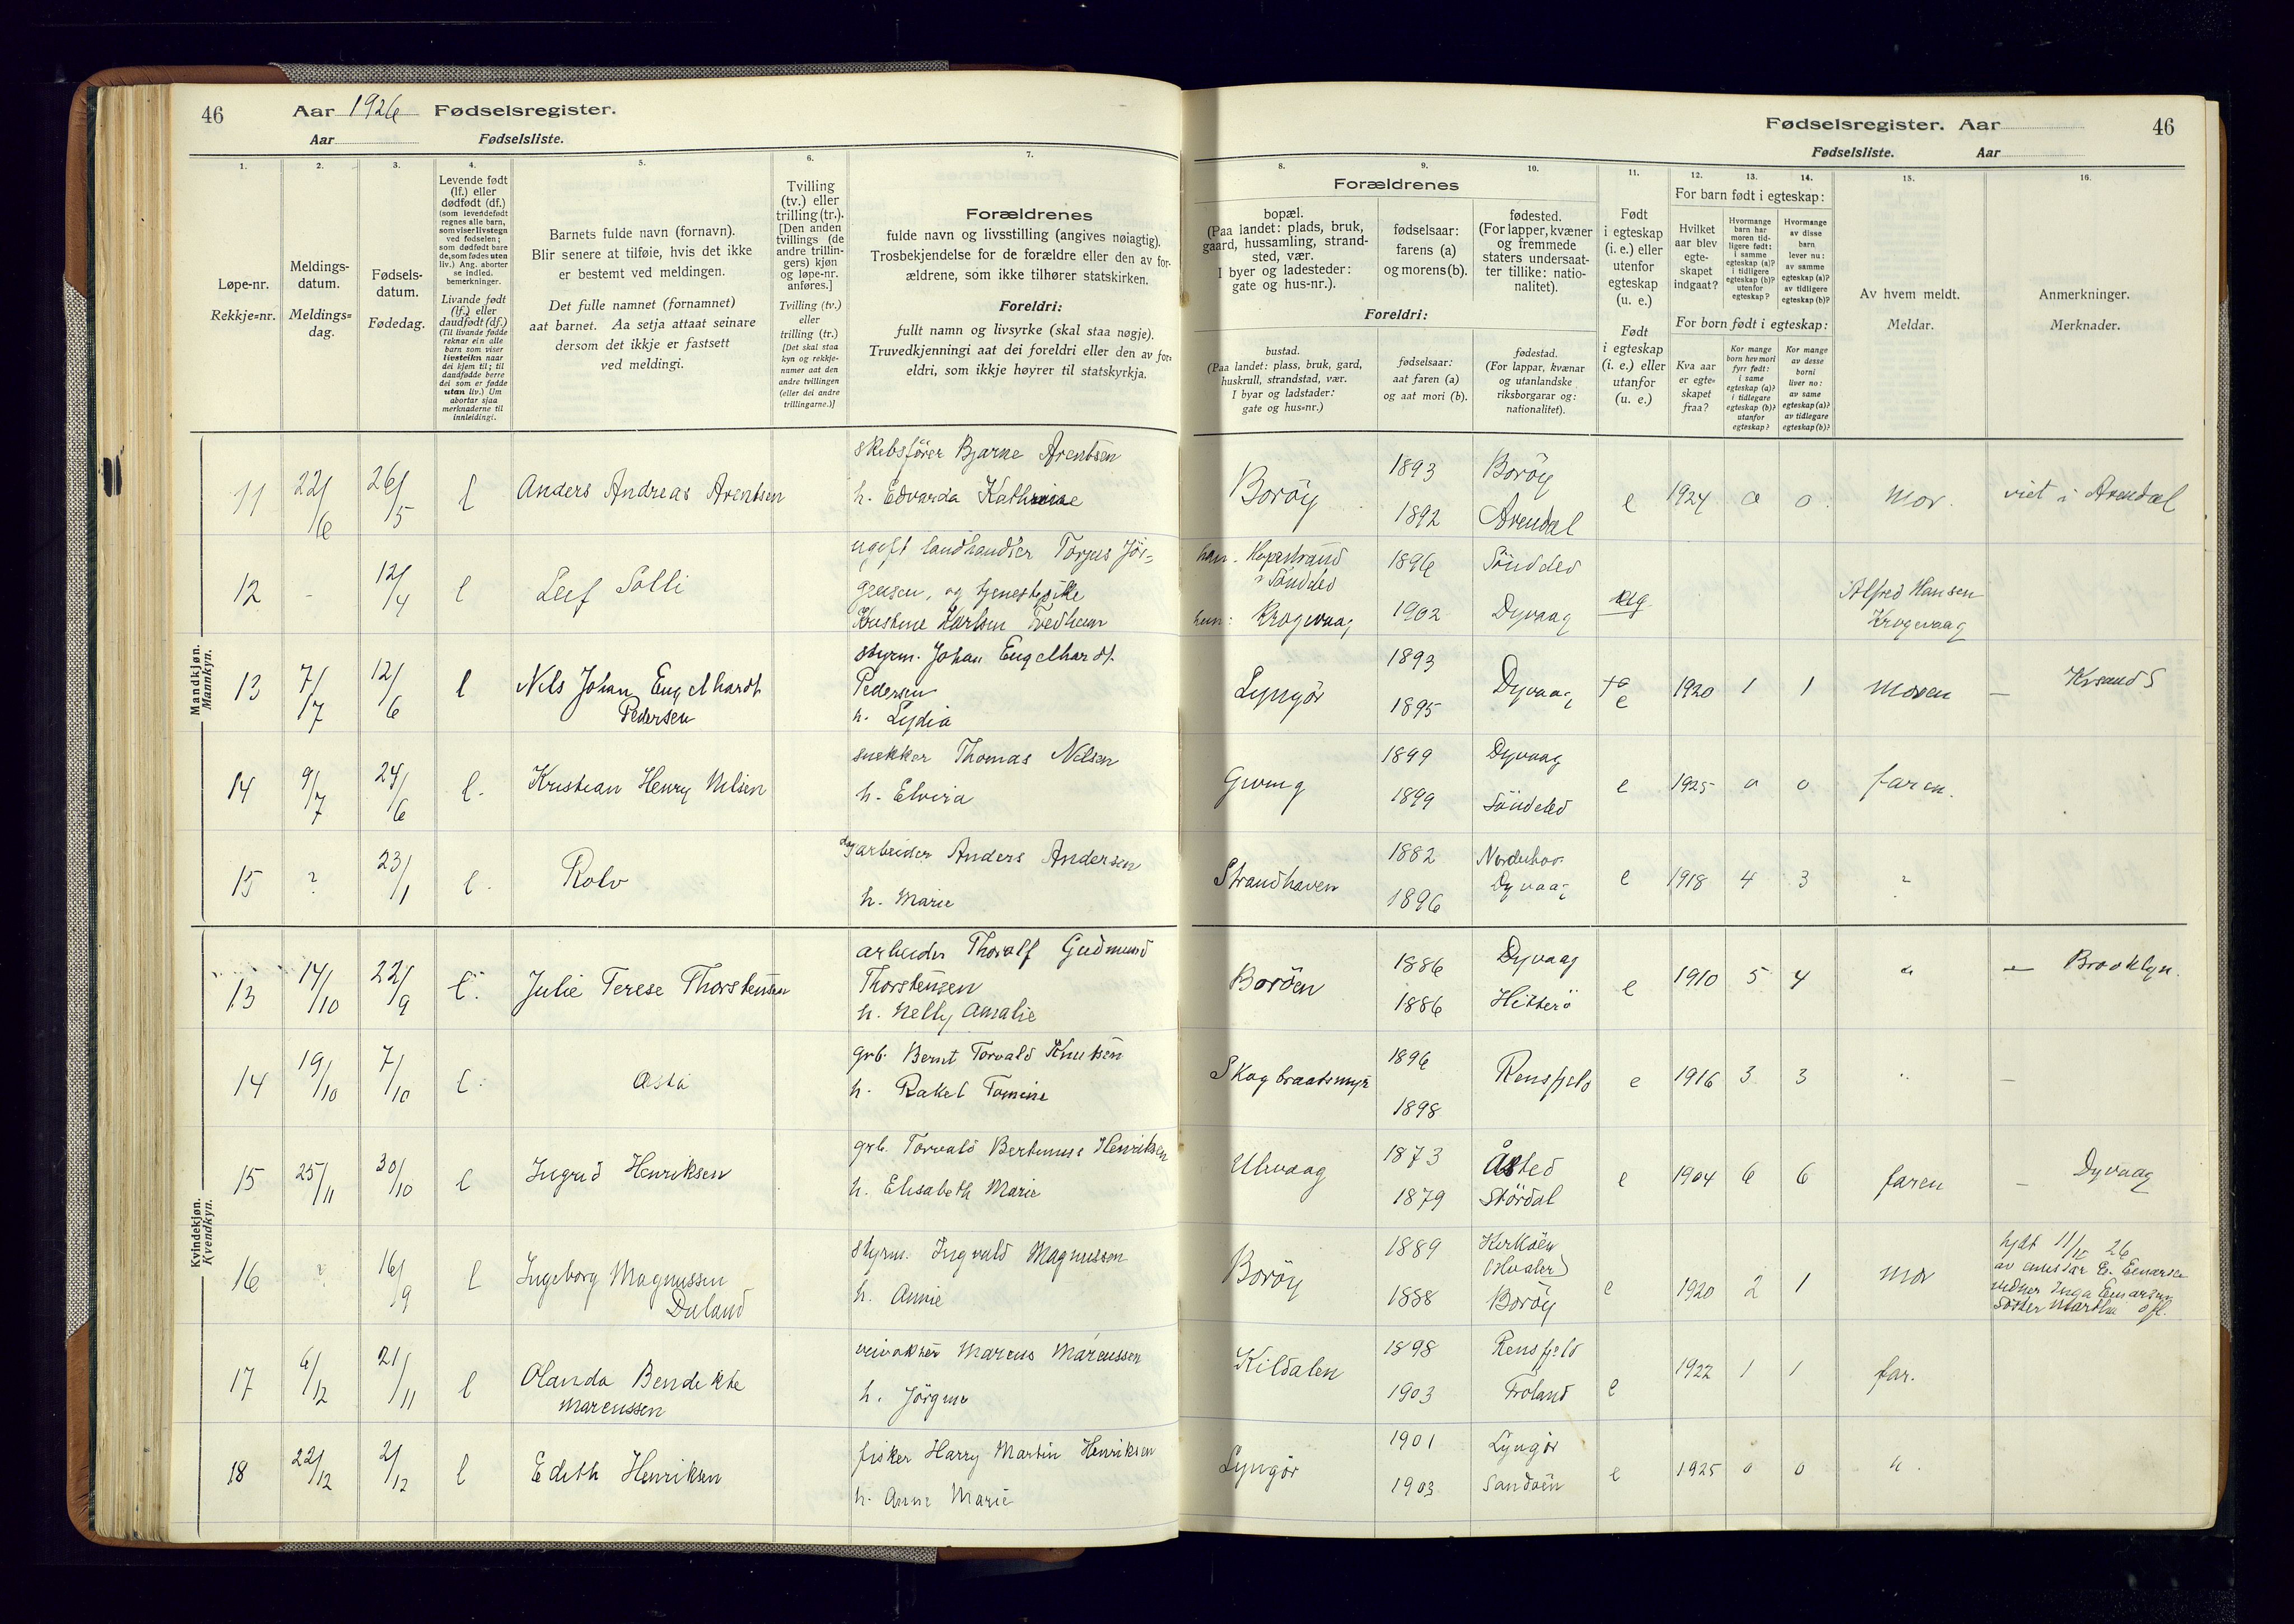 46 Aar 1926 Fødselsregister.
Aar Fødselsliste.
1. 2. 3. 4. 5. 6. 7.
Løpe-nr.
Rekkje=nr.
Meldings-
datum.
Meldings=
dag.
Fødsels-
datum.
Fødedag.
Levende født
(lf.) eller
dødfødt (df.)
(som levendefødt
regnes alle barn,
som viser livstegn
ved fødselen;
som dødfødt bare
de, som fødes uten
liv.) Ang. aborter
se indled.
bemerkninger.
Livande født
(lf.) eller
daudfødt (df.)
(Til livande fødde
reknar ein alle
barn som viser
livsteikn naar
dei kjem til; til
daudfødde berre
dei som er fødde
utan liv.) Um
abortar sjaa
merknaderne til
innleidingi.
Barnets fulde navn (fornavn).
Blir senere at tilføie, hvis det ikke
er bestemt ved meldingen.
Det fulle namnet (fornamnet)
aat barnet. Aa setja attaat seinare
dersom det ikkje er fastsett
ved meldingi.
Tvilling
(tv.) eller
trilling (tr.).
[Den anden
tvillings (de
andre trillin-
gers) kjøn
og løpe-nr.
anføres.]
Tvilling (tv.)
eller
trilling (tr.)
[Det skal staa
kyn og rekkje-
numer aat den
andre tvillingen
(eller dei andre
trillingarne.)]
Forældrenes
fulde navn og livsstilling (angives nøiagtig).
Trosbekjendelse for de forældre eller den av for-
ældrene, som ikke tilhører statskirken.
Foreldri:
fullt namn og livsyrke (skal staa nøgje).
Truvedkjenningi aat dei foreldri eller den av for-
eldri, som ikkje høyrer til statskyrkja.
Mandkjøn.
Mannkyn.
11 22/6 26/5 l Anders Andreas Arentsen
skibsfører Bjarne Arentsen
h. Edvarda Kathrine
12 - 12/4 l Leif Solli
ugift landhandler Torjus Jör-
gensen, og tjenestepike
Kristine Karlsen Tvedheim
13 7/7 12/6 l Nils Johan Engelhardt
Pedersen
styrm. Johan Engelhardt
Pedersen
h. Lydia
14 9/7 24/6 l. Kristian Henry Nilsen
snekker Thomas Nilsen
h. Elvira
15 ? 23/1 l. Rolv
dagarbeider Anders Andersen
h. Marie
Kvindekjøn.
Kvendkyn.
13 14/10 22/9 l. Julie Terese Thorstensen
arbeider Thoralf Gudmund
Thorstensen
h. Nelly Amalie
14 19/10 7/10 l. Asta
grb. Bernt Torvald Knutsen
h. Rakel Tomine
15 25/11 30/10 l Ingrid Henriksen
grb. Torvald Bertinius Henriksen
h. Elisabeth Marie
16 ? 16/9 l Ingeborg Magnussen
Daland
styrm. Ingvald Magnussen
h. Annie
17 6/12 21/11 l Olanda Bendikte
Marcussen
veivokter Marcus Marcussen
h. Jörgine
18 22/12 2/12 l Edith Henriksen
fisker Harry Martin Henriksen
h. Anne Marie
Fødselsregister. Aar 46
Fødselsliste. Aar
8. 9. 10. 11. 12. 13. 14. 15. 16.
Forældrenes
bopæl.
(Paa landet: plads, bruk,
gaard, hussamling, strand-
sted, vær.
I byer og ladesteder:
gate og hus-nr.).
fødselsaar:
farens (a)
og morens (b).
fødested.
(For lapper, kvæner
og fremmede
staters undersaat-
ter tillike: natio-
nalitet).
Foreldri:
bustad.
(Paa landet: plass, bruk, gard,
huskrull, strandstad, vær.
I byar og ladstader:
gate og hus=nr.)
fødselsaar:
aat faren (a)
og aat mori (b).
fødestad.
(For lappar, kvænar
og utanlandske
riksborgarar og:
nationalitet).
Født
i egteskap
(i. e.) eller
utenfor
egteskap
(u. e.)
Født
i egteskap
(i. e.) eller
utanfor
(u. e.)
For barn født i egteskap:
Hvilket
aar blev
egte-
skapet
indgaat?
Hvormange
barn har
moren tid-
ligere født:
i samme
egteskap (a)?
i tidligere
egteskap (b)?
utenfor
egteskap?
Hvormange
av disse
barn
lever nu:
av samme
egteskap (a)?
av tidligere
egteskap (b)?
For born født i egteskap:
Kva aar
er egte=
skapet
fraa?
Kor mange
born hev mori
fyrr født:
i same
egteskap (a)?
i tidlegare
egteskap (b)?
utanfor
egteskap?
Kor mange
av desse
borni
liver no:
av same
egteskap (a)?
av tidlegare
egteskap (b)?
Av hvem meldt.
Meldar.
Anmerkninger.
Merknader.
Boröy 1893 Boröy
1892 Arendal e 1924 0 0. Mor. viet i Arendal
han - Hopestrand
i Söndeled 1896 Söndeled
hun: Krogvaag 1902 Dyvaag Alfred Hansen
Krogvaag
Lyngör 1893
1895 Dyvaag e 1920 1 1 Moren - Krsand S
Gjeving 1899 Dyvaag
1899 Söndeled e 1925 0 0 faren.
Strandhaven 1882 Norderhov
1896 Dyvaag e 1918 4 3 ?
Boröen 1886 Dyvaag
1886 Hitterö e 1910 5 4 " - Brooklyn.
Skogbraatsmyr 1896
1898 Rensfjeld e 1916 3 3 " -
Ulevaag 1873 Åsted
1879 Stördal e 1904 6 6 faren - Dyvaag
Boröy 1889 Kirköen
(Hvaler)
1888 Boröy e 1920 2 1 mor
hjdt 11/10 26
av E. Einarsen
vidner Inga Einarsen
Söster Martha ofl.
Kildalen 1898 Rensfjeld
1903 Froland e 1922 1 1 far.
Lyngör 1901 Lyngör
1903 Sandöen e 1925 0 0 ".